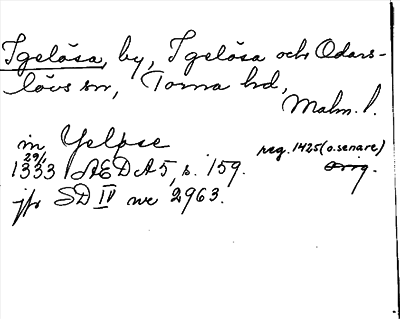 Igelösa, by, Igelösa och Odars-
lövs sn, Torna hd,
Malm. l.
in Yelpse
reg. 1425 (o. senare)
29/1
1333 AEDA 5, s. 159. orig.
jfr SD IV nr 2963.